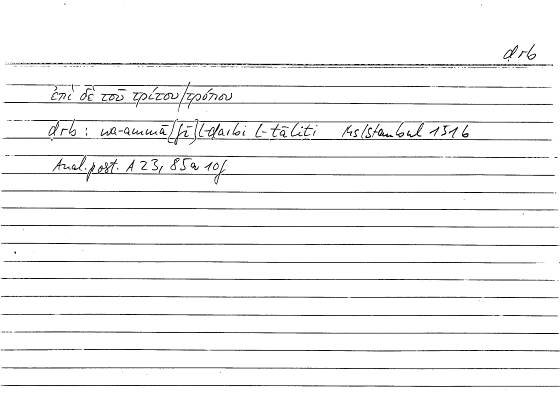 ḍrb
ἐπὶ δὲ τοῦ τρίτου/τρόπου
ḍrb : wa-ammā [fī] l-ḍarbi l-ṯāliṯi Ms Istanbul 1316
Anal. post. A 23, 85a 10f